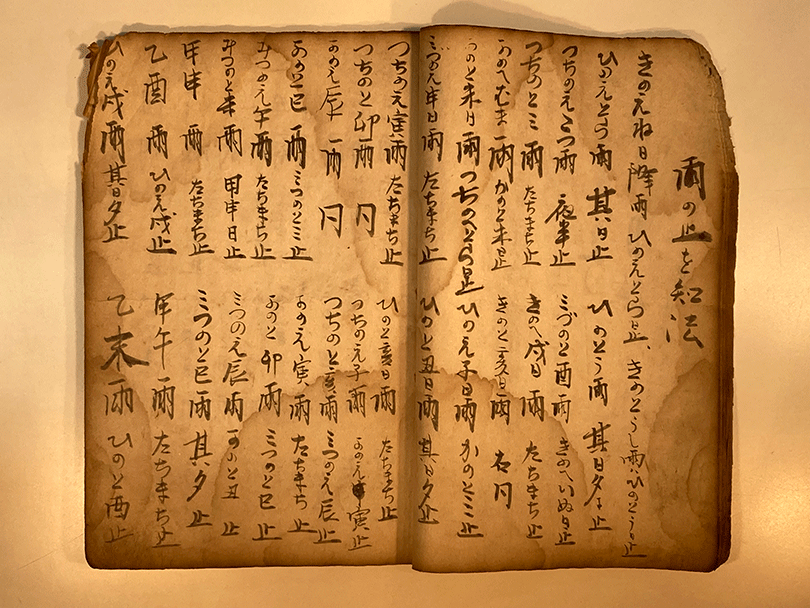 雨の止を知法
きのえね日降雨 ひのえとら止、きのとうし雨ひのとう日止
ひのえとら雨 其日止 ひのとう雨 其日夕止
つちのえたつ雨 夜半止 みづのと酉雨 きのへいぬ日止
つちのとミ雨 たちまち止 きのへ戌日雨 たちまち止
かのへむま雨 かのと未日止 きのと亥日雨 右同
かのと未日雨 つちのとら日止 ひのえ子日雨 かのとミ止
みづのえ申日雨 たちまち止 ひのと丑日雨 其日夕止
つちのえ寅雨 たちまち止 ひのと亥日雨 たちまち止
つちのと卯雨 同 つちのえ子雨 かのえ寅止
かのえ辰雨 同 つちのと亥雨 みつのえ辰止
かのと巳雨 みつのとミ止 かのえ寅雨 たちまち止
みつのえ午雨 たちまち止 かのと卯雨 みつのと巳止
みつのと未雨 甲申日止 みつのえ辰雨 かのと丑止
甲申雨 たちまち止 みつのと巳雨 其夕止
乙酉雨 ひのえ戌止 甲午雨 たちまち止
ひのえ戌雨 其日夕止 乙未雨 ひのと酉止